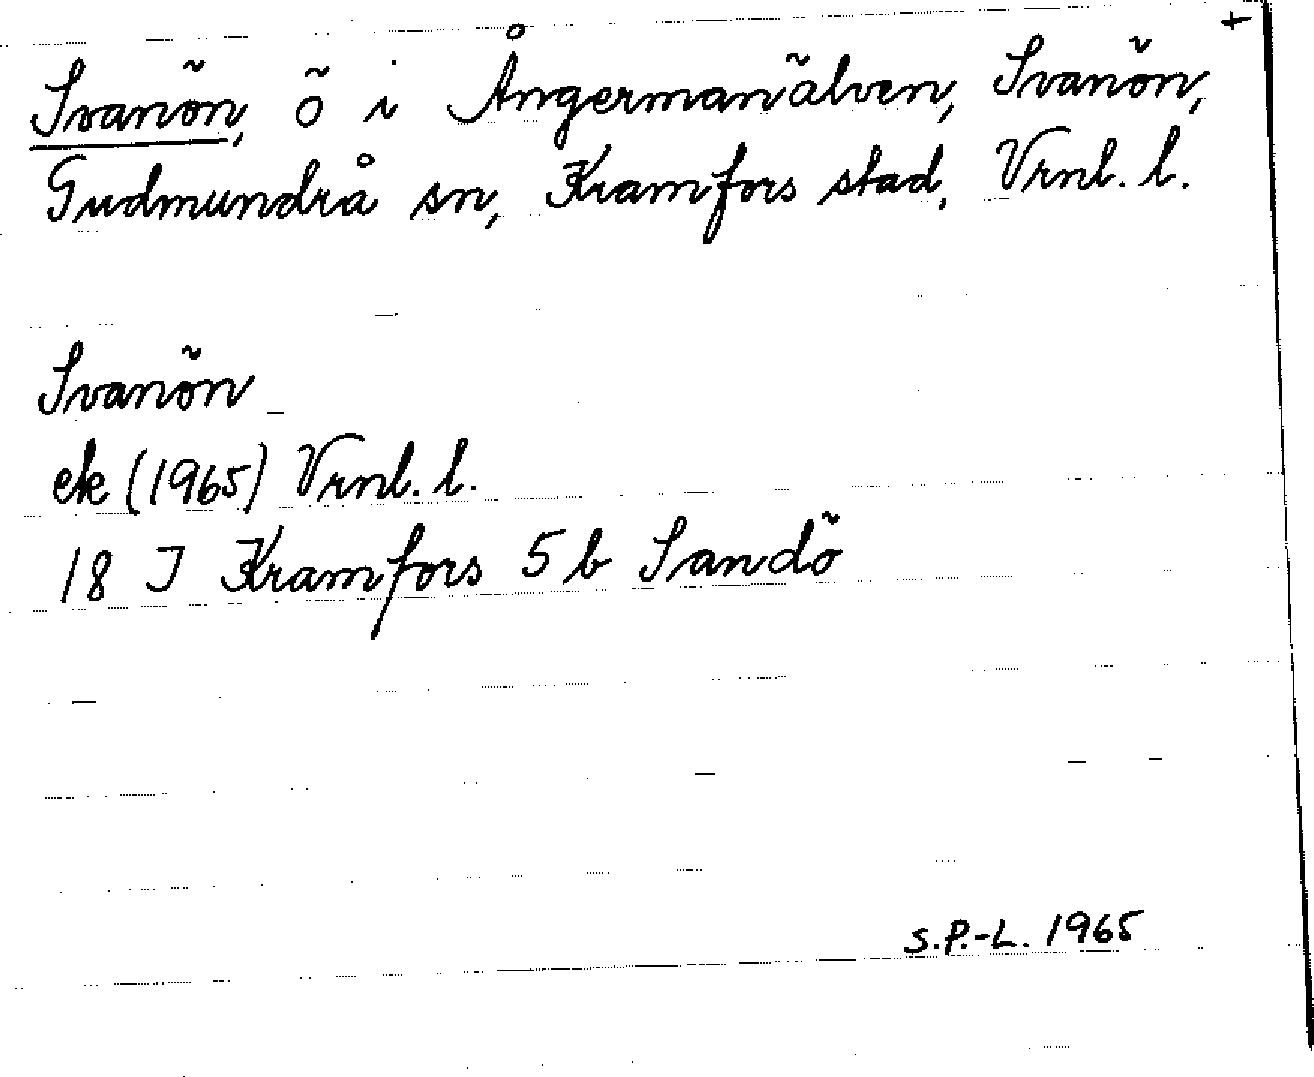 +
Svanön, ö i Ångermanälven, Svanön,
Gudmundrå sn, Kramfors stad, Vrnl. l.
Svanön
ek (1965) Vrnl. l.
18 I Kramfors 5 b Sandö
S.P.-L. 1965